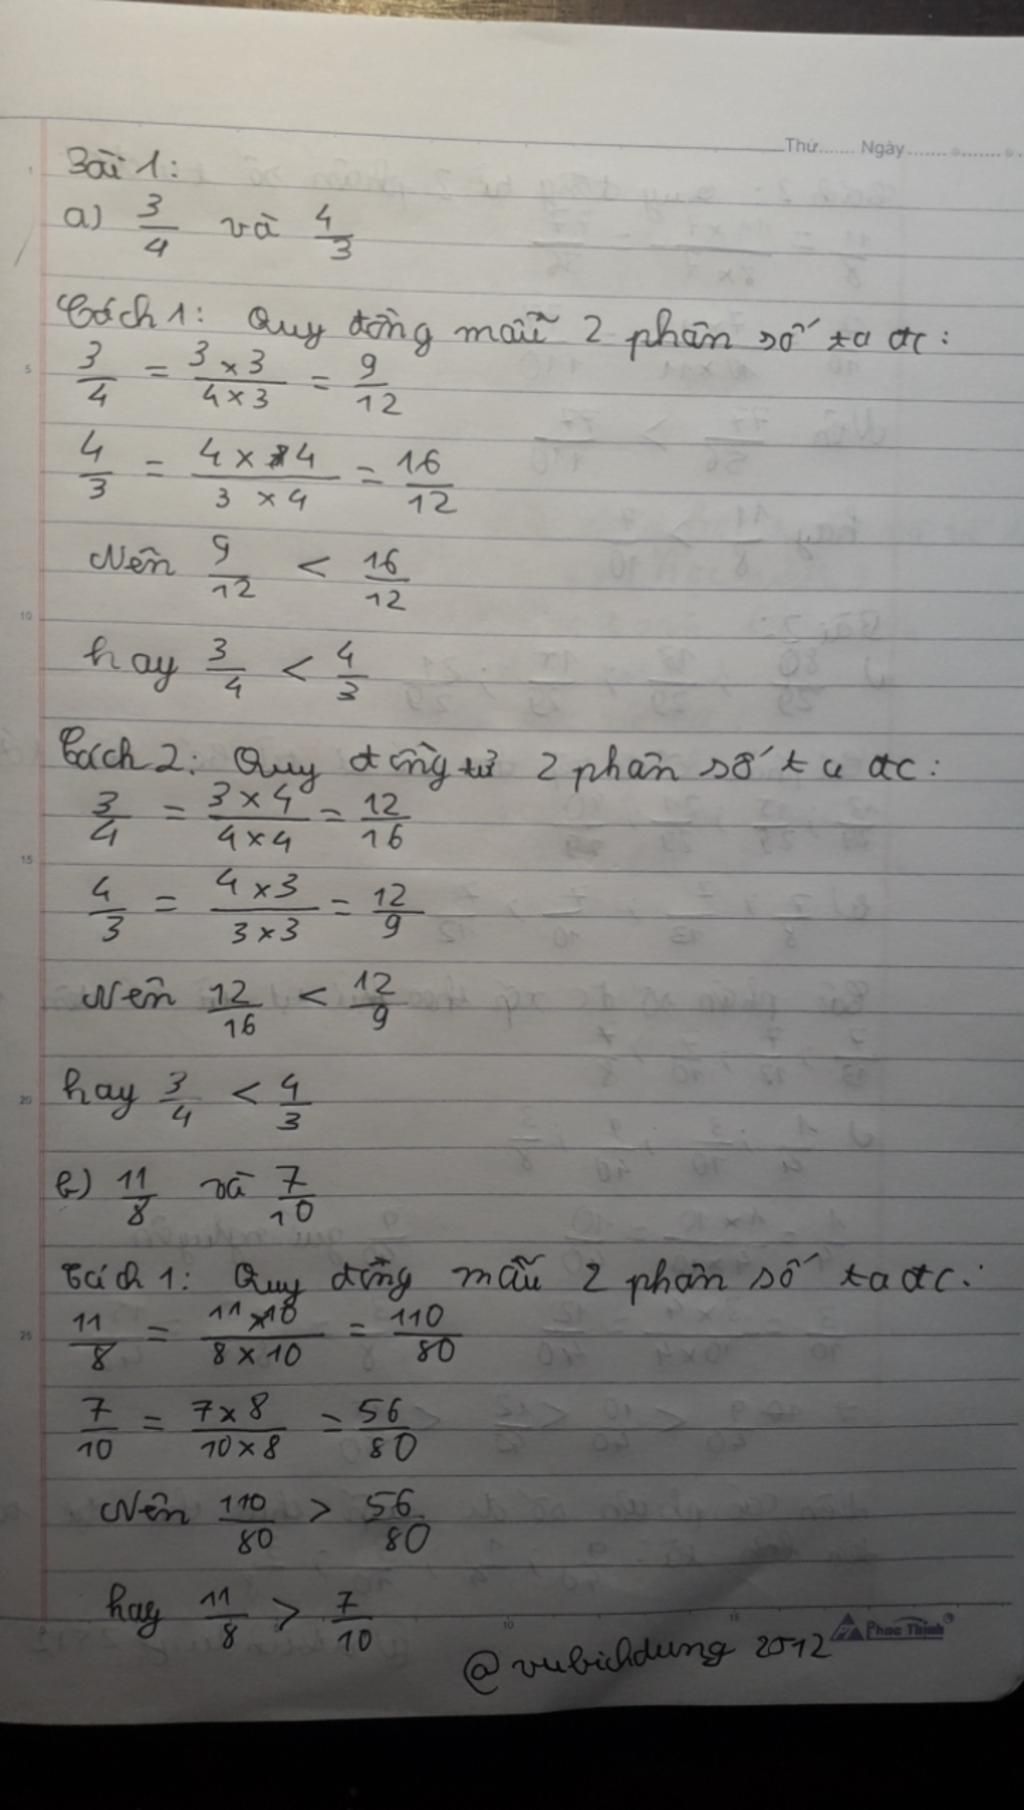 Thứ....... Ngày..................
Bài 1:
a) 3/4 và 4/3
Cách 1: Quy đồng mẫu 2 phân số ta đc:
3/4 = 3 x 3 / 4 x 3 = 9/12
4/3 = 4 x 4 / 3 x 4 = 16/12
Nên 9/12 < 16/12
hay 3/4 < 4/3
Cách 2: Quy đồng tử 2 phân số ta đc:
3/4 = 3 x 4 / 4 x 4 = 12/16
4/3 = 4 x 3 / 3 x 3 = 12/9
Nên 12/16 < 12/9
hay 3/4 < 4/3
b) 11/8 và 7/10
Cách 1: Quy đồng mẫu 2 phân số ta đc:
11/8 = 11 x 10 / 8 x 10 = 110/80
7/10 = 7 x 8 / 10 x 8 = 56/80
Nên 110/80 > 56/80
hay 11/8 > 7/10
@vubichdung 2012
Phuc Thinh
5
10
15
20
25
10
15